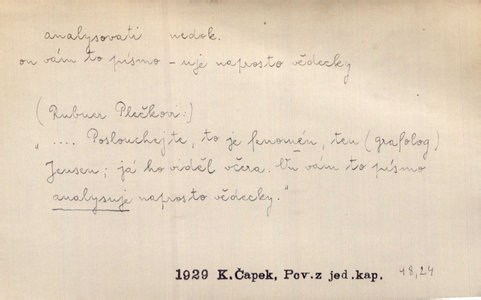 analysovati nedok.
on vám to písmo – uje naprosto vědecky
(Rubner Plečkovi:)
„.... Poslouchejte, to je fenomén, ten (grafolog)
Jensen; já ho viděl včera. On vám to písmo
analysuje naprosto vědecky."
1929 K.Čapek, Pov.z jed.kap. 48,24